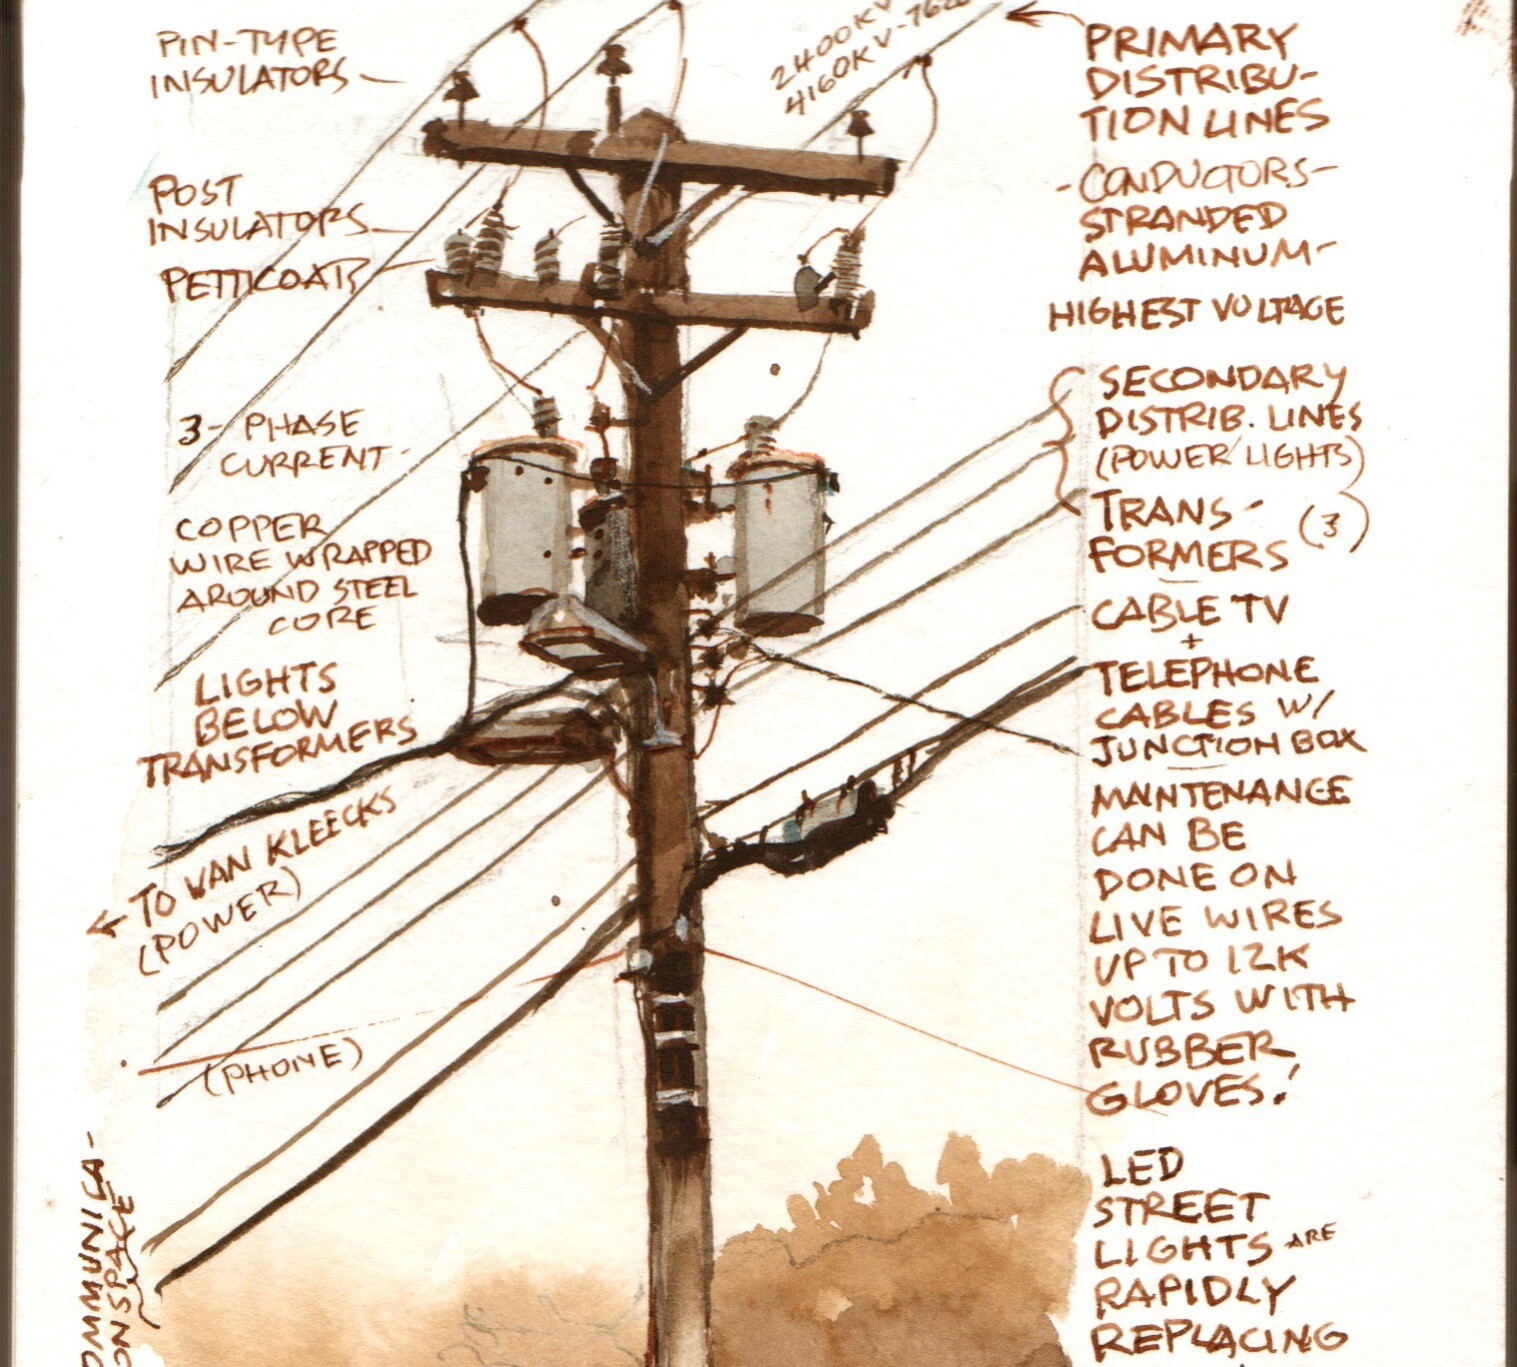 PIN-TYPE
INSULATORS
POST
INSULATORS
PETTICOATS
3-PHASE
CURRENT
COPPER
WIRE WRAPPED
AROUND STEEL
CORE
LIGHTS
BELOW
TRANSFORMERS
TO VAN KLEECKS
(POWER)
(PHONE)
2400KV
4160KV-
PRIMARY
DISTRIBU-
TION LINES
-CONDUCTORS-
STRANDED
ALUMINUM-
HIGHEST VOLTAGE
SECONDARY
DISTRIB. LINES
(POWER/LIGHTS)
TRANS-
FORMERS (3)
CABLE TV
+
TELEPHONE
CABLES W/
JUNCTION BOX
MAINTENANCE
CAN BE
DONE ON
LIVE WIRES
UP TO 12K
VOLTS WITH
RUBBER
GLOVES!
LED
STREET
LIGHTS ARE
RAPIDLY
REPLACING